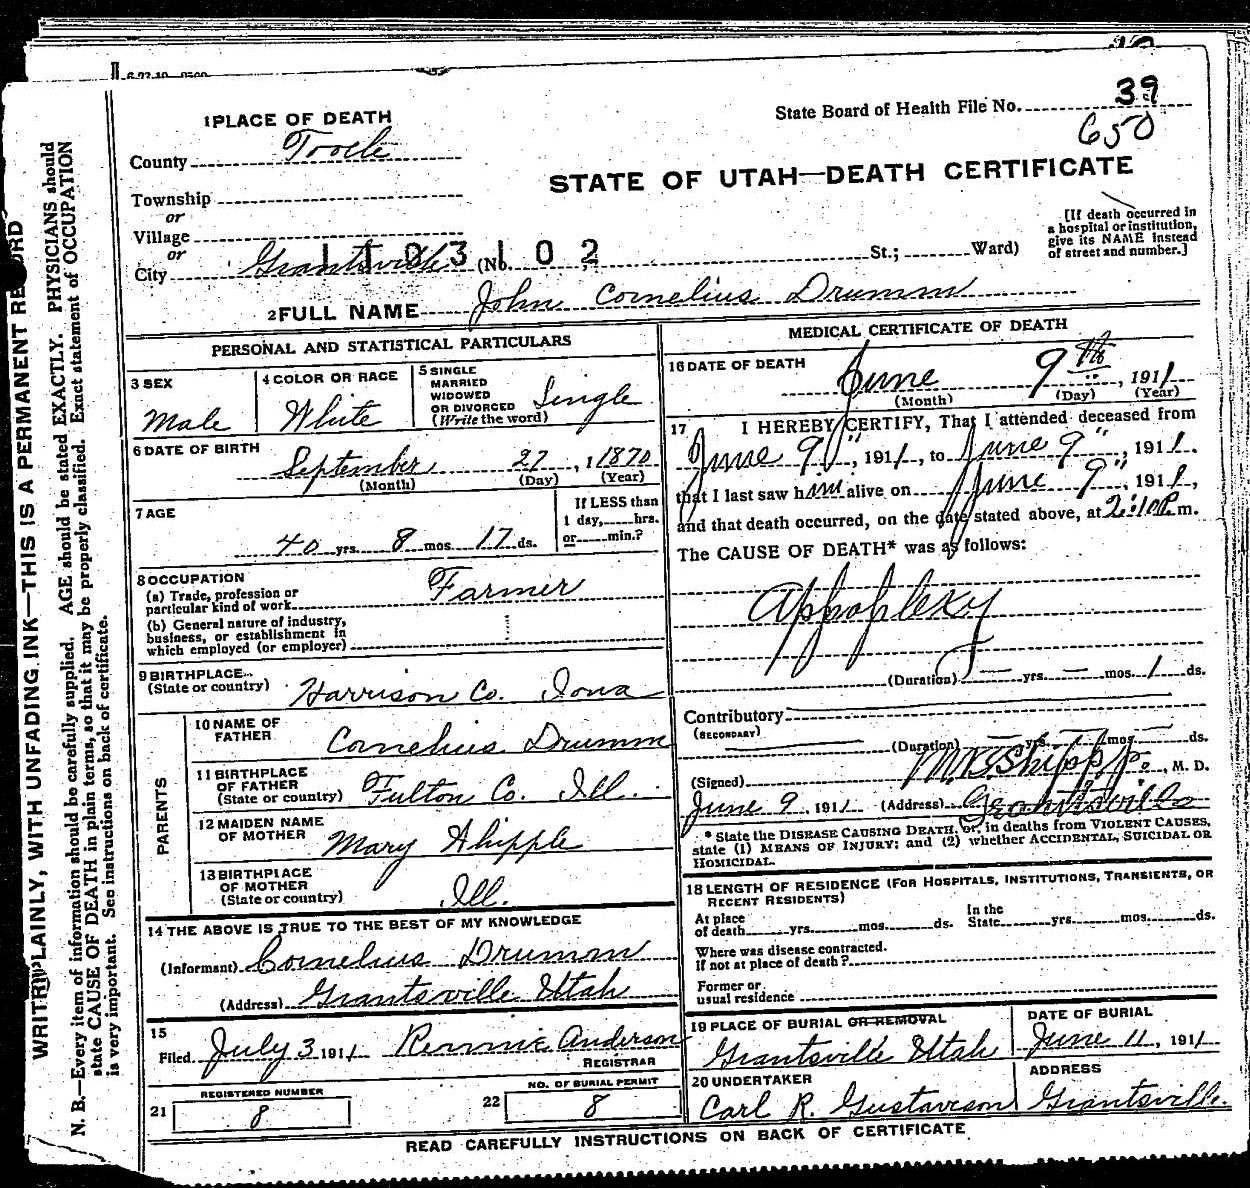 State Board of Health File No. 39
650
1 PLACE OF DEATH
County Tooele
STATE OF UTAH—DEATH CERTIFICATE
Township
or
Village
or
City Grantsville (No. St.; Ward)
1103102
[If death occurred in
a hospital or institution,
give its NAME instead
of street and number.]
2 FULL NAME John Cornelius Drumm
PERSONAL AND STATISTICAL PARTICULARS
3 SEX
Male
4 COLOR OR RACE
White
5 SINGLE
MARRIED
WIDOWED
OR DIVORCED
(Write the word)
Single
6 DATE OF BIRTH
September 27, 1 1870
(Month) (Day) (Year)
7 AGE
40 yrs. 8 mos. 17 ds.
If LESS than
1 day, hrs.
or min.?
8 OCCUPATION
(a) Trade, profession or
particular kind of work
Farmer
(b) General nature of industry,
business, or establishment in
which employed (or employer)
9 BIRTHPLACE
(State or country)
Harrison Co. Iowa
PARENTS
10 NAME OF
FATHER
Cornelius Drumm
11 BIRTHPLACE
OF FATHER
(State or country)
Fulton Co. Ill.
12 MAIDEN NAME
OF MOTHER
Mary Whipple
13 BIRTHPLACE
OF MOTHER
(State or country)
Ill.
14 THE ABOVE IS TRUE TO THE BEST OF MY KNOWLEDGE
(Informant) Cornelius Drumm
(Address) Grantsville Utah
15
Filed July 3 1911 Anderson
REGISTRAR
REGISTERED NUMBER
21 8
NO. OF BURIAL PERMIT
22 8
MEDICAL CERTIFICATE OF DEATH
16 DATE OF DEATH
June 9th, 1911
(Month) (Day) (Year)
17 I HEREBY CERTIFY, That I attended deceased from
June 9", 1911, to June 9", 1911.
that I last saw him alive on June 9", 1911,
and that death occurred, on the date stated above, at 2:10 P. m.
The CAUSE OF DEATH* was as follows:
Appoplexy
(Duration) — yrs. — mos. 1 ds.
Contributory
(SECONDARY)
(Duration) yrs. mos. ds.
(Signed) Shipp, M. D.
June 9, 1911 (Address) Grantsville
* State the DISEASE CAUSING DEATH, or, in deaths from VIOLENT CAUSES,
state (1) MEANS OF INJURY; and (2) whether ACCIDENTAL, SUICIDAL OR
HOMICIDAL.
18 LENGTH OF RESIDENCE (FOR HOSPITALS, INSTITUTIONS, TRANSIENTS, OR
RECENT RESIDENTS)
At place
of death yrs. mos. ds.
In the
State yrs. mos. ds.
Where was disease contracted.
if not at place of death?
Former or
usual residence
19 PLACE OF BURIAL OR REMOVAL
Grantsville Utah
DATE OF BURIAL
June 11, 1911
20 UNDERTAKER
Carl R. Gustavson
ADDRESS
Grantsville.
READ CAREFULLY INSTRUCTIONS ON BACK OF CERTIFICATE
WRITE PLAINLY, WITH UNFADING INK—THIS IS A PERMANENT RECORD
N. B.—Every item of information should be carefully supplied. AGE should be stated EXACTLY. PHYSICIANS should
state CAUSE OF DEATH in plain terms, so that it may be properly classified. Exact statement of OCCUPATION
is very important. See instructions on back of certificate.